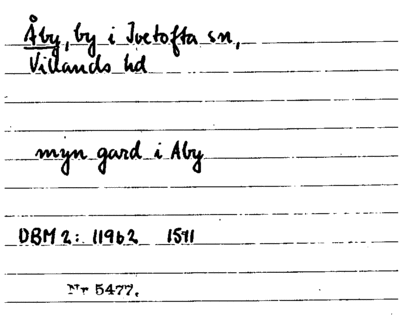 Åby, by i Ivetofta sn,
Villands hd
myn gard i Aby
DBM 2: 11962 1511
Nr 5477.